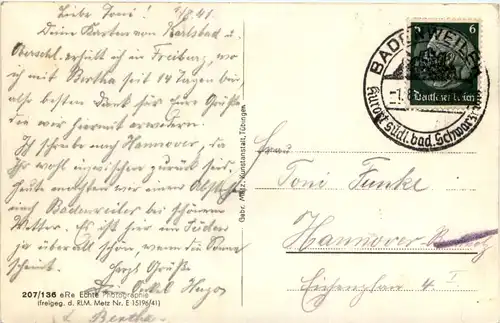 Liebe Toni! 1/8.41.
Deine Karten von Karlsbad u.
erhielt ich in Freiburg, wo
ich mit Bertha seit 14 Tagen bin,
also besten Dank für Eure Grüße
die wir hiermit erwidern.
Ich schreibe nach Hannover, da
Ihr wohl inzwischen zurück seid.
Heute machten wir einen
nach Badenweiler bei schönem
Wetter. Es ist hier im Süden
ja überall schön, wenn die Sonne
scheint. Herzl. Grüße
Onkel Hugo
u. Bertha.
207/136 eRe Echte Photographie
(freigeg. d. RLM. Metz Nr. E 15196/41)
Gebr. Metz, Kunstanstalt, Tübingen
BADENWEILER
Kurort südl. bad. Schwarzwald
6 6
Deutsches Reich
Frau
Toni Funke
Hannover
4 I